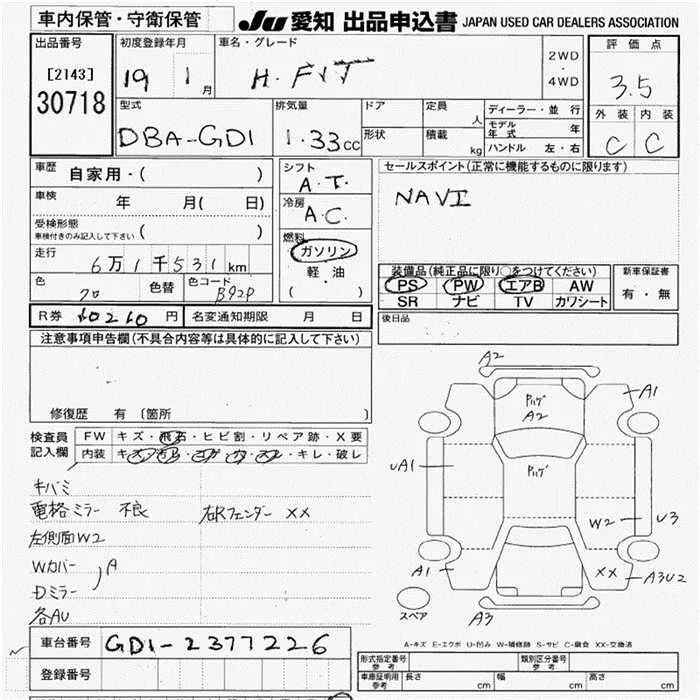 車内保管・守衛保管
JU 愛知 出品申込書 JAPAN USED CAR DEALERS ASSOCIATION
出品番号 初度登録年月 車名・グレード 2WD・4WD 評価点
[2143] 30718 19 1月 H. FIT 3.5
型式 排気量 ドア 定員 人 ディーラー・並行 外装 内装
DBA-GD1 1.33cc 形状 積載 kg モデル年式 年 C C
ハンドル 左・右
車歴 自家用・( ) シフト A.T. セールスポイント(正常に機能するものに限ります)
車検 年 月( 日) 冷房 A.C. NAVI
受検形態 車検付きのみ記入して下さい ( ) 燃料 ガソリン
走行 6万1千531km 軽油 装備品(純正品に限り○をつけてください) 新車保証書
色 クロ 色替 色コード B92P ( ) PS PW エアB AW 有・無
SR ナビ TV カワシート
R券 10210円 名変通知期限 月 日 後日品
注意事項申告欄(不具合内容等は具体的に記入して下さい)
修復歴 有〔箇所 〕
検査員 FW キズ・飛石・ヒビ割・リペア跡・X要
記入欄 内装 キズ・汚レ・コゲ・穴・スレ・キレ・破レ
キバミ
電格ミラー 不良 右Rフェンダー XX
左側面W2
Wカバー A
Dミラー
各AU
A2
A1
Pハゲ
A2
Pハゲ
UA1
W2 U3
A1 XX A3U2
スペア A3
A-キズ E-エクボ U-凹み W-補修跡 S-サビ C-腐食 XX-交換済
車台番号 GD1-2377226
登録番号
形式指定番号 参考 類別区分番号 参考
車庫証明用 参考 長さ cm 幅 cm 高さ cm